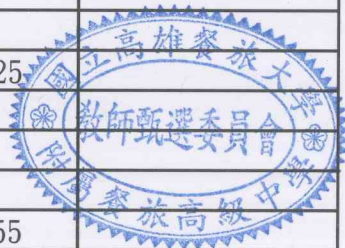 國立高雄餐旅大學
25
教師甄選委員會
附屬餐旅高級中學
55